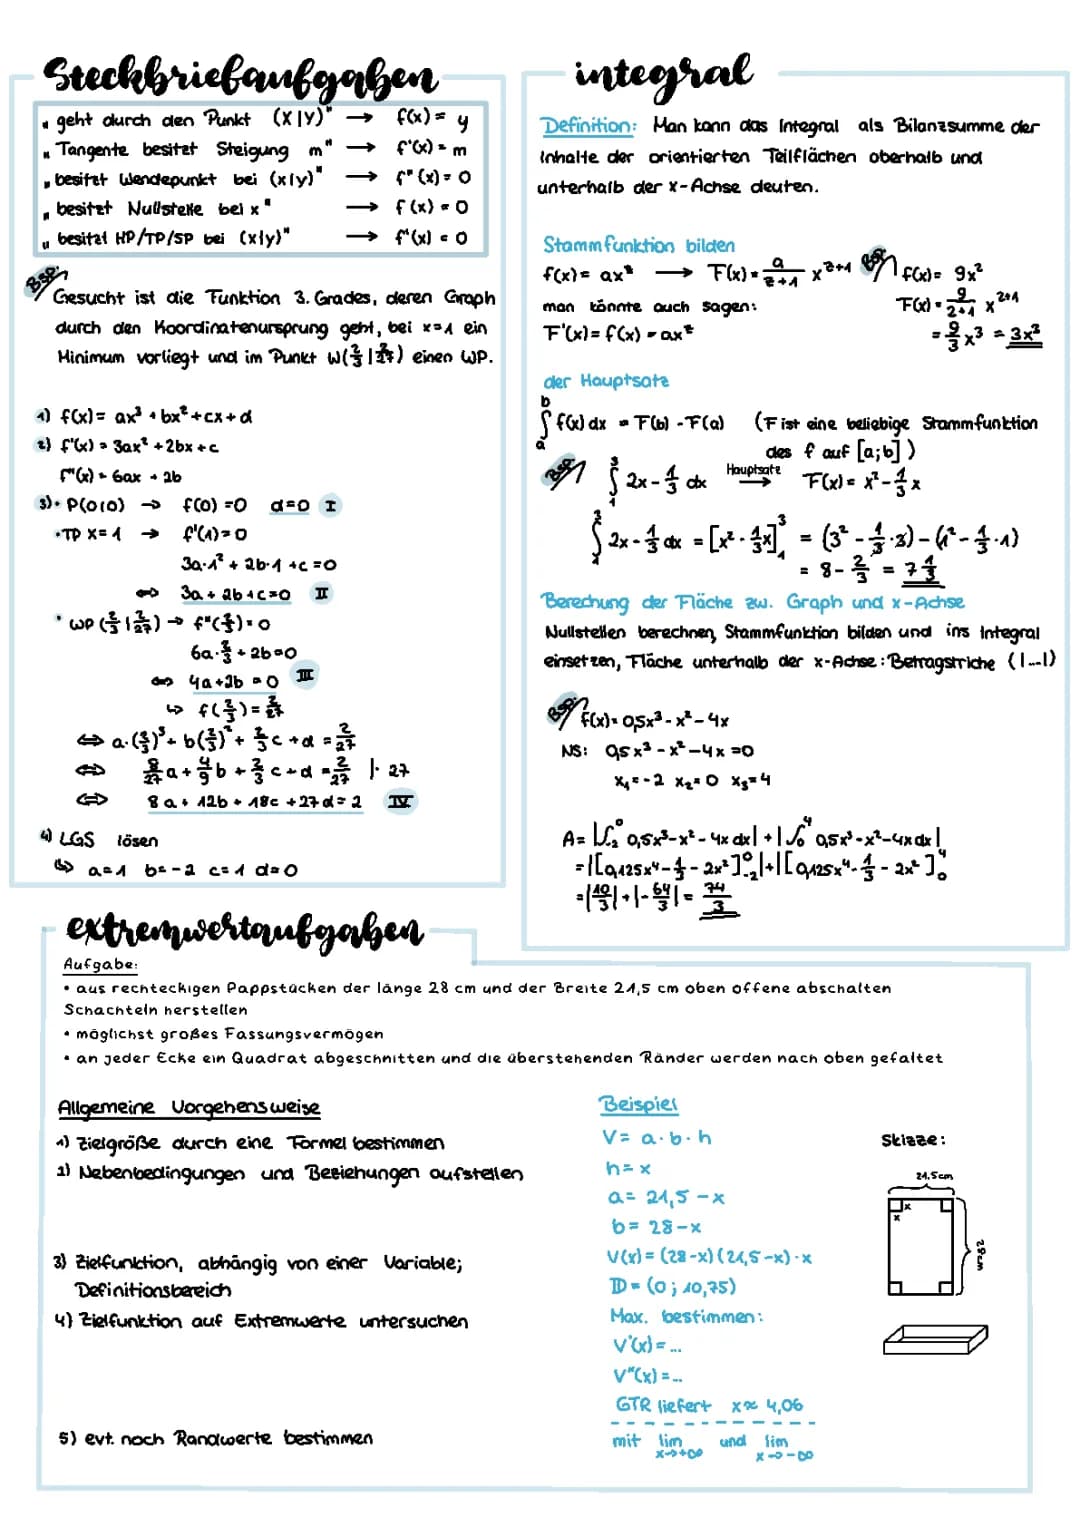 Steckbriefaufgaben
"geht durch den Punkt (x|y)" → f(x) = y
"Tangente besitzt Steigung m" → f'(x) = m
"besitzt Wendepunkt bei (x|y)" → f"(x) = 0
"besitzt Nullstelle bei x" → f(x) = 0
"besitzt HP/TP/SP bei (x|y)" → f'(x) = 0
Bsp.
Gesucht ist die Funktion 3. Grades, deren Graph
durch den Koordinatenursprung geht, bei x=1 ein
Minimum vorliegt und im Punkt W(2/3 | 2/27) einen WP.
1) f(x) = ax³ + bx² + cx + d
2) f'(x) = 3ax² + 2bx + c
f"(x) = 6ax + 2b
3) • P(0|0) → f(0) = 0 d=0 I
• TP x=1 → f'(1) = 0
3a·1² + 2b·1 + c = 0
⇔ 3a + 2b + c = 0 II
• WP (2/3 | 2/27) → f"(2/3) = 0
6a·2/3 + 2b = 0
⇔ 4a + 2b = 0 III
↳ f(2/3) = 2/27
⇔ a·(2/3)³ + b(2/3)² + 2/3 c + d = 2/27
⇔ 8/27 a + 4/9 b + 2/3 c + d = 2/27 |· 27
⇔ 8a + 12b + 18c + 27d = 2 IV
4) LGS lösen
↳ a=1 b=-2 c=1 d=0
integral
Definition: Man kann das Integral als Bilanzsumme der
Inhalte der orientierten Teilflächen oberhalb und
unterhalb der x-Achse deuten.
Stammfunktion bilden
f(x) = ax^z → F(x) = a/(z+1) x^(z+1)
man könnte auch sagen:
F'(x) = f(x) = ax^z
Bsp. f(x) = 9x²
F(x) = 9/(2+1) x^(2+1)
= 9/3 x³ = 3x³
der Hauptsatz
∫_a^b f(x) dx = F(b) - F(a) (F ist eine beliebige Stammfunktion
des f auf [a;b])
Bsp. ∫_1^3 2x - 1/3 dx Hauptsatz → F(x) = x² - 1/3 x
∫_1^3 2x - 1/3 dx = [x² - 1/3x]_1^3 = (3² - 1/3·3) - (1² - 1/3·1)
= 8 - 2/3 = 7 1/3
Berechung der Fläche zw. Graph und x-Achse
Nullstellen berechnen, Stammfunktion bilden und ins Integral
einsetzen, Fläche unterhalb der x-Achse: Betragstriche (|...|)
Bsp. f(x) = 0,5x³ - x² - 4x
NS: 0,5x³ - x² - 4x = 0
x₁ = -2 x₂ = 0 x₃ = 4
A = |∫_-2^0 0,5x³ - x² - 4x dx| + |∫_0^4 0,5x³ - x² - 4x dx|
= |[0,125x⁴ - 1/3 - 2x²]_-2^0| + |[0,125x⁴ - 1/3 - 2x²]_0^4
= |10/3| + |-64/3| = 74/3
extremwertaufgaben
Aufgabe:
• aus rechteckigen Pappstücken der länge 28 cm und der Breite 21,5 cm oben offene abschalten
Schachteln herstellen
• möglichst großes Fassungsvermögen
• an jeder Ecke ein Quadrat abgeschnitten und die überstehenden Ränder werden nach oben gefaltet
Allgemeine Vorgehensweise
1) Zielgröße durch eine Formel bestimmen
2) Nebenbedingungen und Beziehungen aufstellen
3) Zielfunktion, abhängig von einer Variable;
Definitionsbereich
4) Zielfunktion auf Extremwerte untersuchen
5) evt. noch Randwerte bestimmen
Beispiel
V = a·b·h
h = x
a = 21,5 - x
b = 28 - x
V(x) = (28-x)(21,5-x)·x
D = (0; 10,75)
Max. bestimmen:
V'(x) = ...
V"(x) = ...
GTR liefert x ≈ 4,06
mit lim x→+∞ und lim x→-∞
Skizze:
21,5cm
x
x
28cm